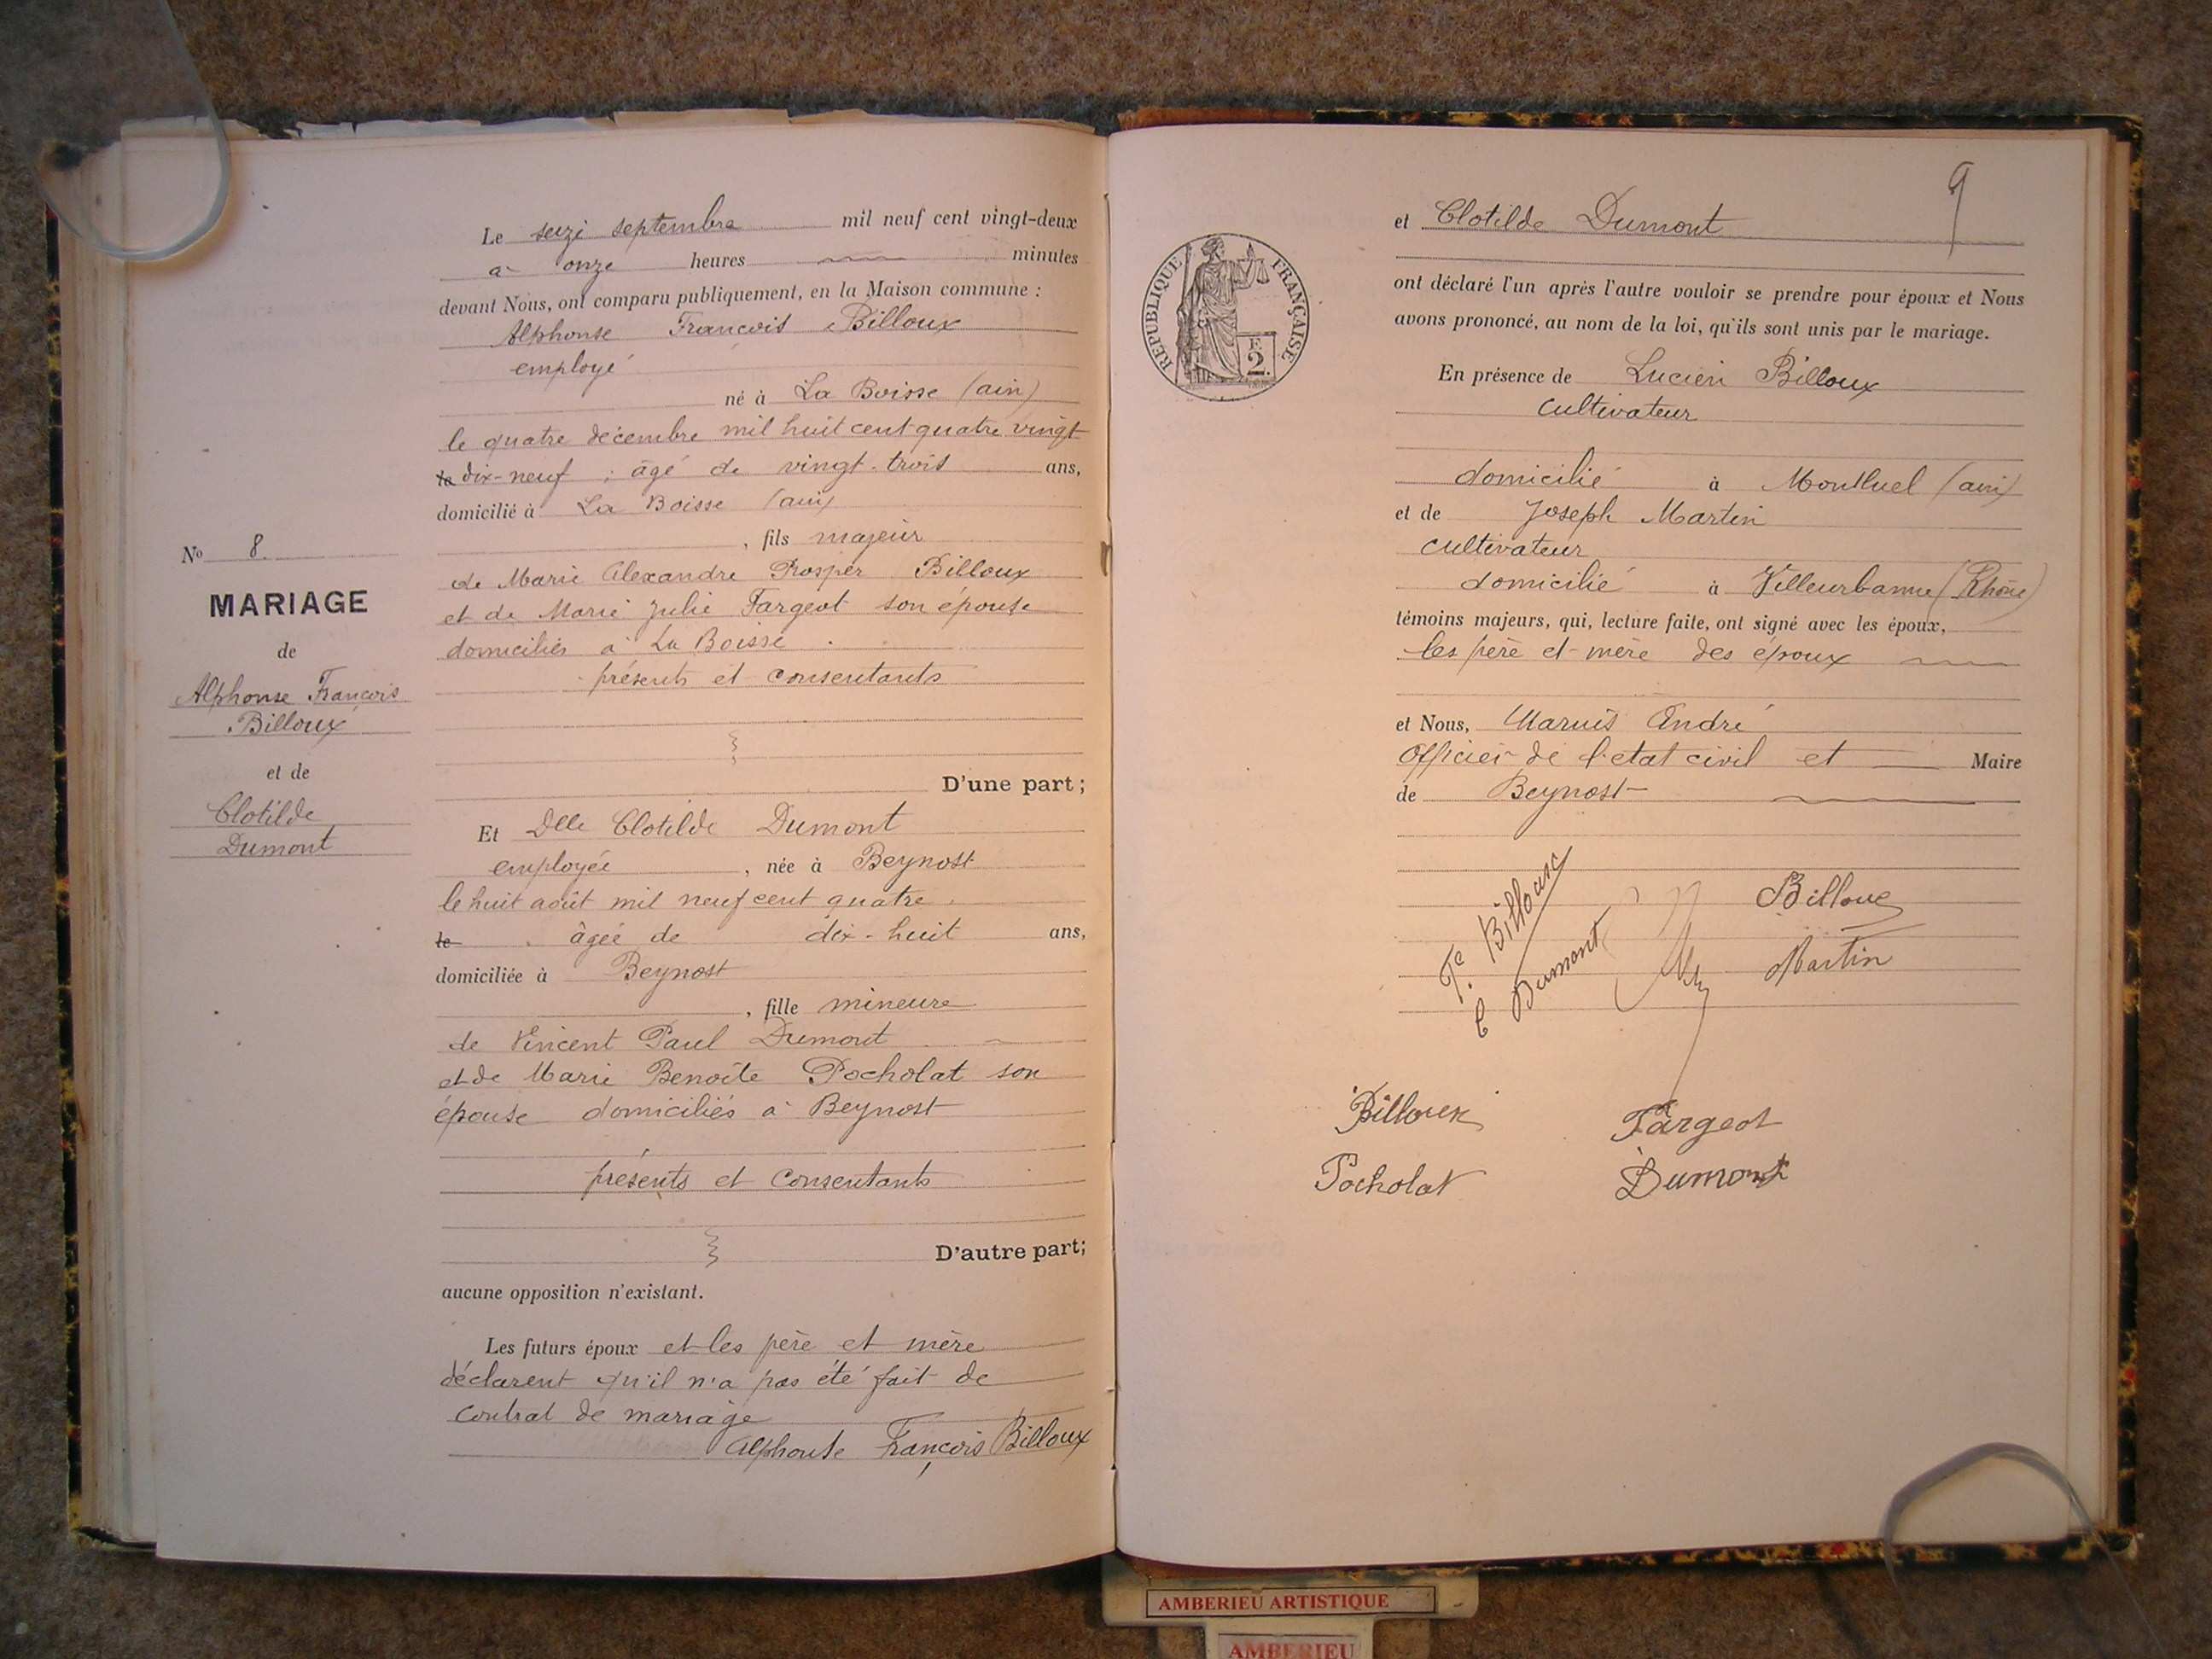 Le seize septembre mil neuf cent vingt-deux
à onze heures minutes
devant Nous, ont comparu publiquement, en la Maison commune :
Alphonse François Billoux
employé
né à La Boisse (ain)
le quatre décembre mil huit cent quatre vingt
le dix-neuf ; âgé de vingt-trois ans,
domicilié à La Boisse (ain)
, fils majeur
de Marie Alexandre Prosper Billoux
et de Marie Julie Fargeot son épouse
domiciliés à La Boisse
présents et consentants
D'une part ;
No 8
MARIAGE
de
Alphonse François
Billoux
et de
Clotilde
Dumont
Et Delle Clotilde Dumont
employée , née à Beynost
le huit août mil neuf cent quatre
le âgée de dix-huit ans,
domiciliée à Beynost
, fille mineure
de Vincent Paul Dumont
et de Marie Benoîte Pocholat son
épouse domiciliés à Beynost
présents et consentants
D'autre part;
aucune opposition n'existant.
Les futurs époux et les père et mère
déclarent qu'il n'a pas été fait de
contrat de mariage
Alphonse François Billoux
9
et Clotilde Dumont
RÉPUBLIQUE FRANÇAISE
F.
2.
ont déclaré l'un après l'autre vouloir se prendre pour époux et Nous
avons prononcé, au nom de la loi, qu'ils sont unis par le mariage.
En présence de Lucien Billoux
cultivateur
domicilié à Montluel (ain)
et de Joseph Martin
cultivateur
domicilié à Villeurbanne (Rhône)
témoins majeurs, qui, lecture faite, ont signé avec les époux,
les père et mère des époux
et Nous, Maruis André
Officier de l'etat civil et Maire
de Beynost
Billoux
Billoux
C Dumont
Martin
Billoux
Fargeot
Pocholat
Dumont
AMBERIEU ARTISTIQUE
AMBERIEU